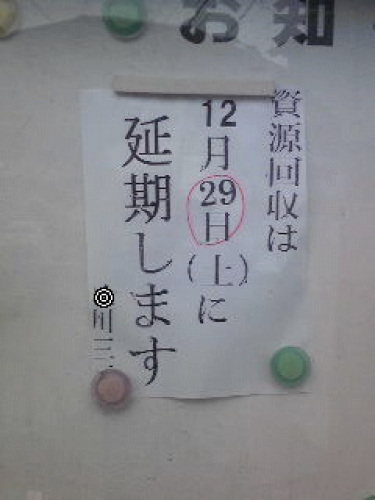 お知
資源回収は
12月29日(土)に
延期します